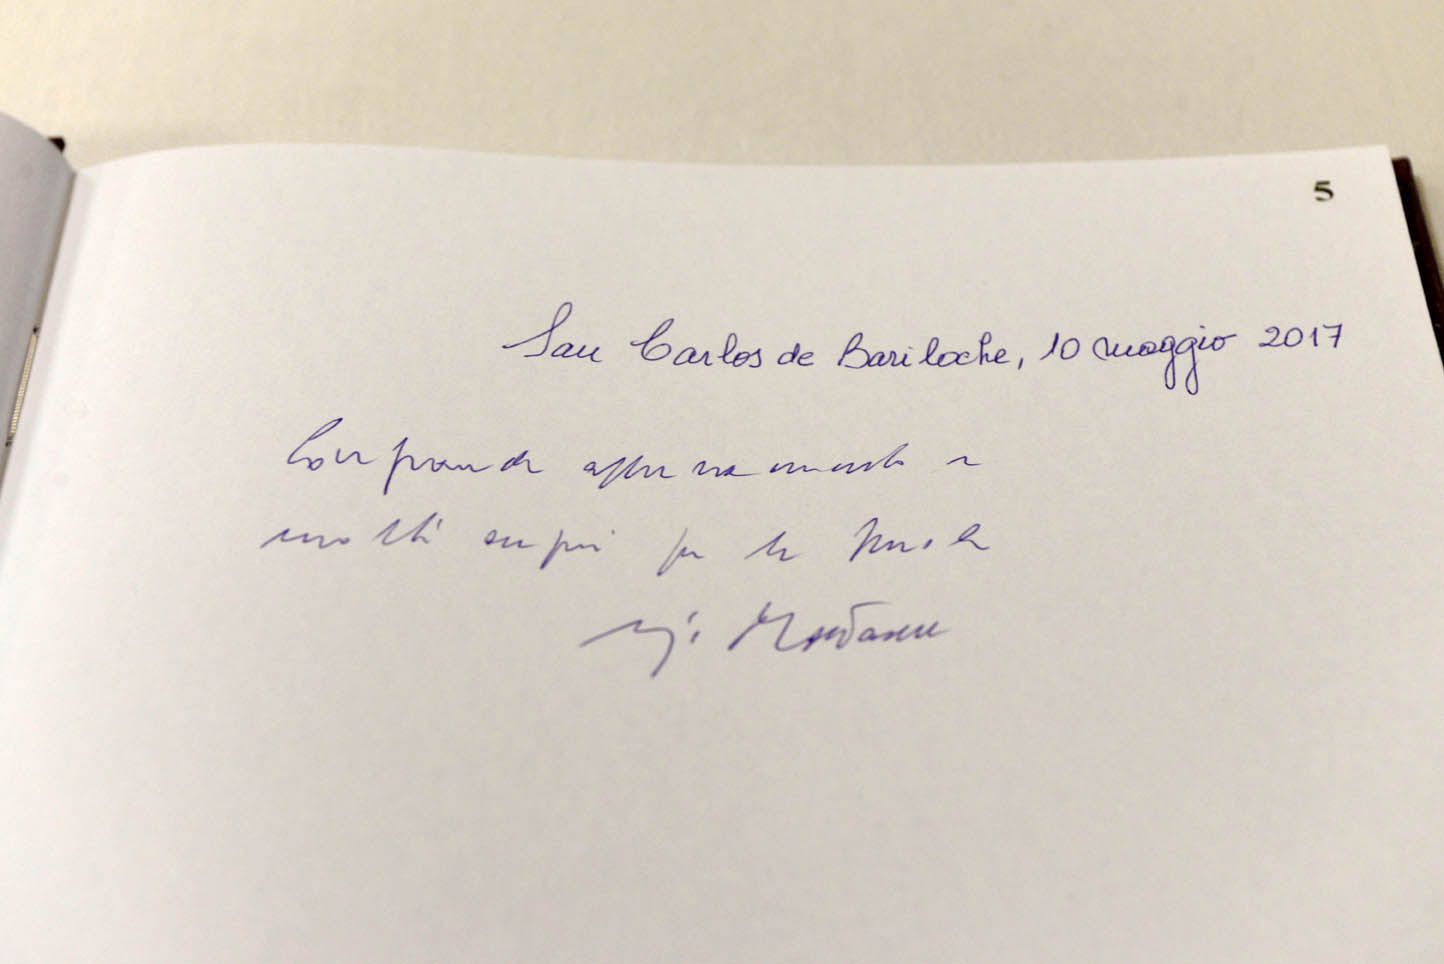 5
San Carlos de Bariloche, 10 maggio 2017
Con grande apprezzamento e
molti auguri per la Scuola
Mattarella